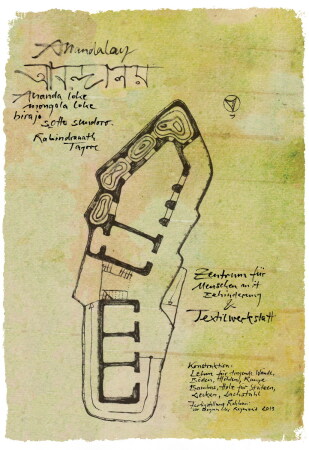 Anandalay
আনন্দালয়
Ananda loke
mongola loke
biraja
sotto sundoro.
Rabindranath
Tagore
Zentrum für
Menschen mit
Behinderung
&
Textilwerkstatt
Konstruktion:
Lehm für tragende Wände,
Böden, Höhlen, Rampe
Bambus, Holz für Stützen,
Decken, Dachstuhl